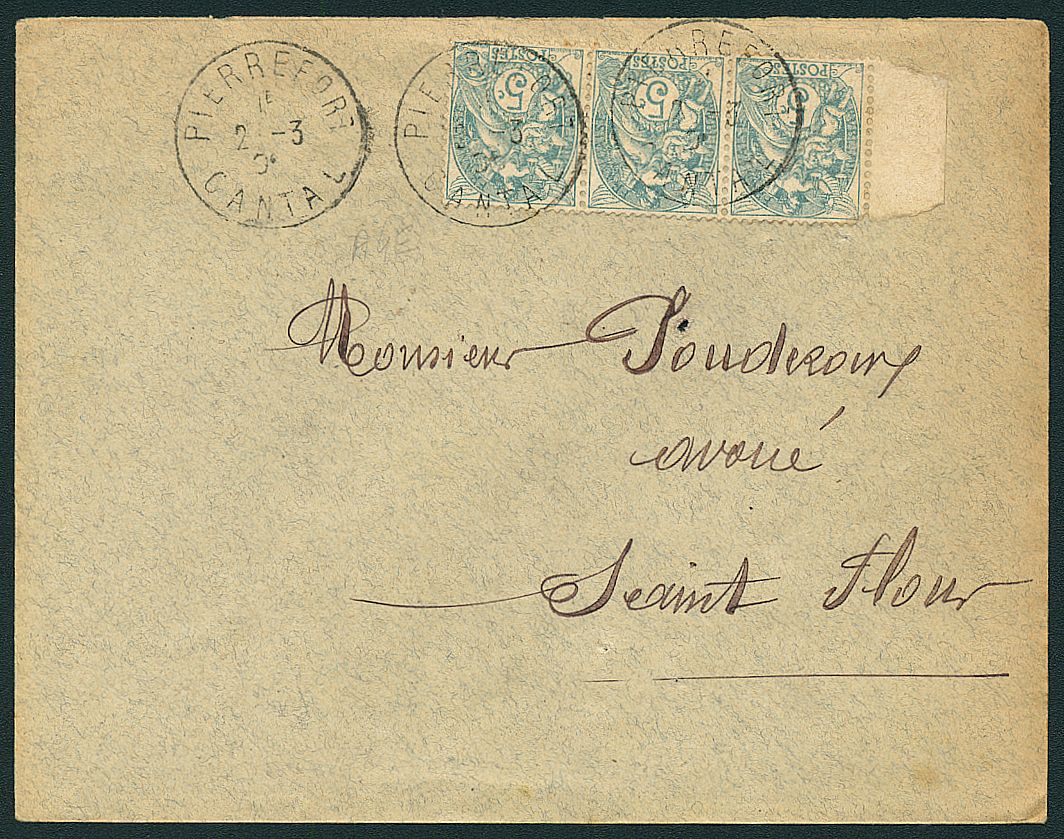 PIERREFORT
1E
2 -3
CANTAL
PIERREFORT
3
CANTAL
POSTES
5
POSTES
5
POSTES
5
AGE
Monsieur
avoué
Saint Flour